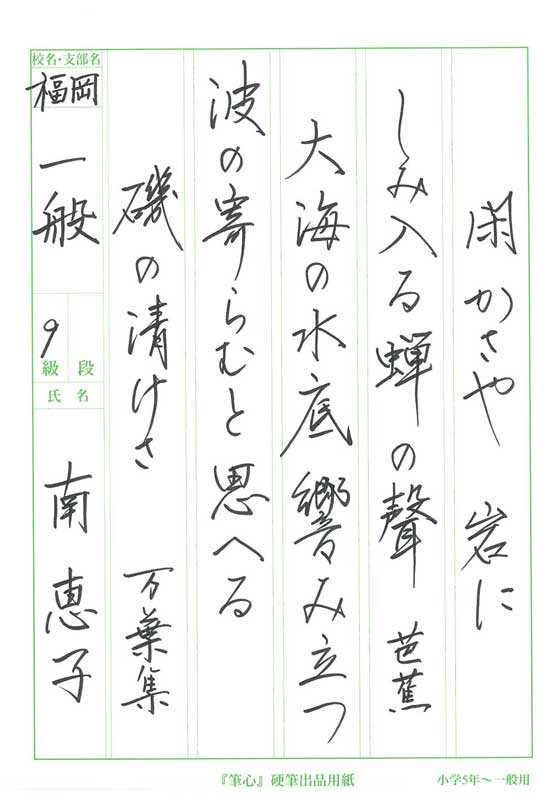 閑かさや 岩に
しみ入る蝉の聲 芭蕉
大海の水底響み立つ
波の寄らむと思へる
磯の清けさ 万葉集
校名・支部名
福岡
一般
9
級 段
氏名
南 恵子
『筆心』硬筆出品用紙
小学5年〜一般用